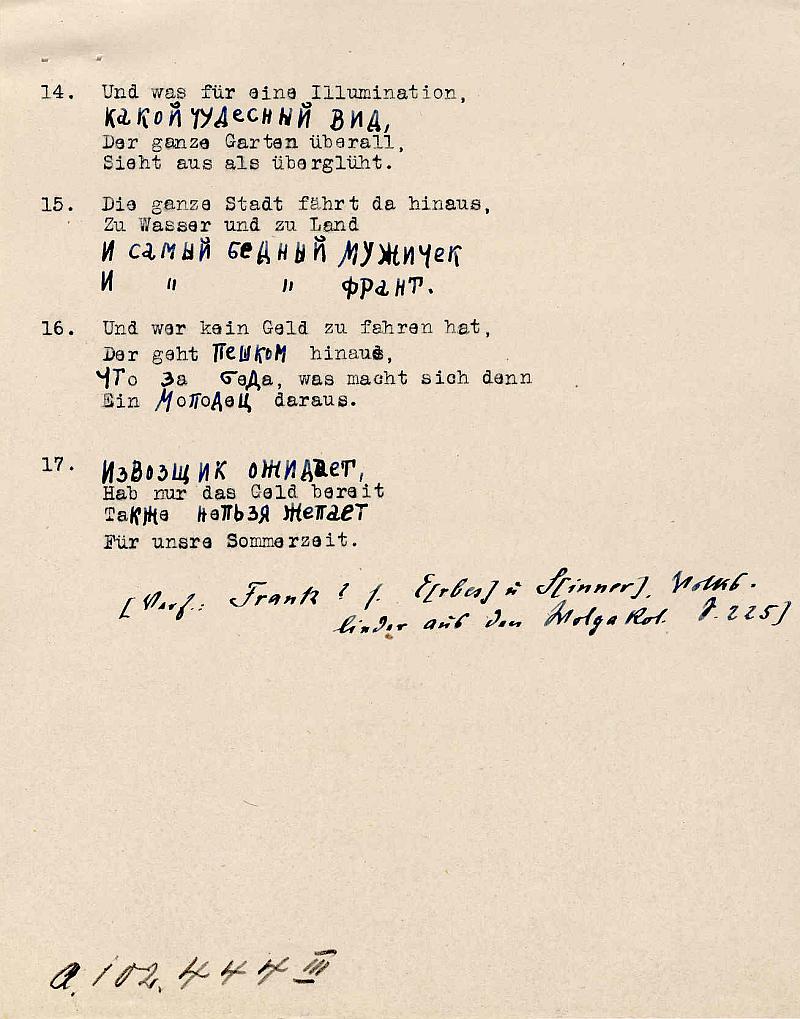 14. Und was für eine Illumination,
Какой чудесный вид,
Der ganze Garten überall,
Sieht aus als überglüht.
15. Die ganze Stadt fährt da hinaus,
Zu Wasser und zu Land
И самый бедный мужичек
И " " франт.
16. Und wer kein Geld zu fahren hat,
Der geht пешком hinaus,
Что за беда, was macht sich denn
Ein Молодец daraus.
17. Извозщик ожидает,
Hab nur das Geld bereit
Также нельзя желает
Für unsre Sommerzeit.
[Verf.: Frank? s. E[rbes] u S[inner], Volks-
lieder aus den Wolgakol. S. 225]
A. 102.444 III